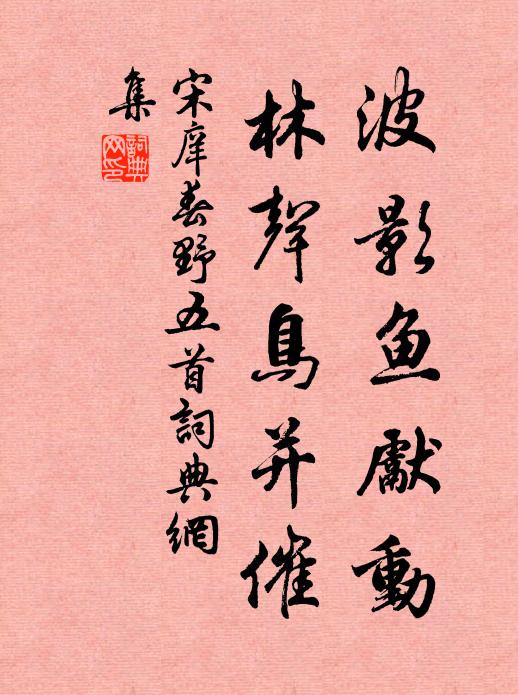 波影鱼獻動
林聲鳥并催
宋庠春野五首詞典網
集
詞典
网印